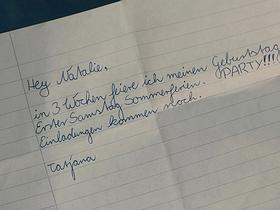 Hey Natalie,
in 3 Wochen feiere ich meinen Geburtstag
Erster Samstag Sommerferien. (PARTY!!!)
Einladungen kommen noch.
Tatjana